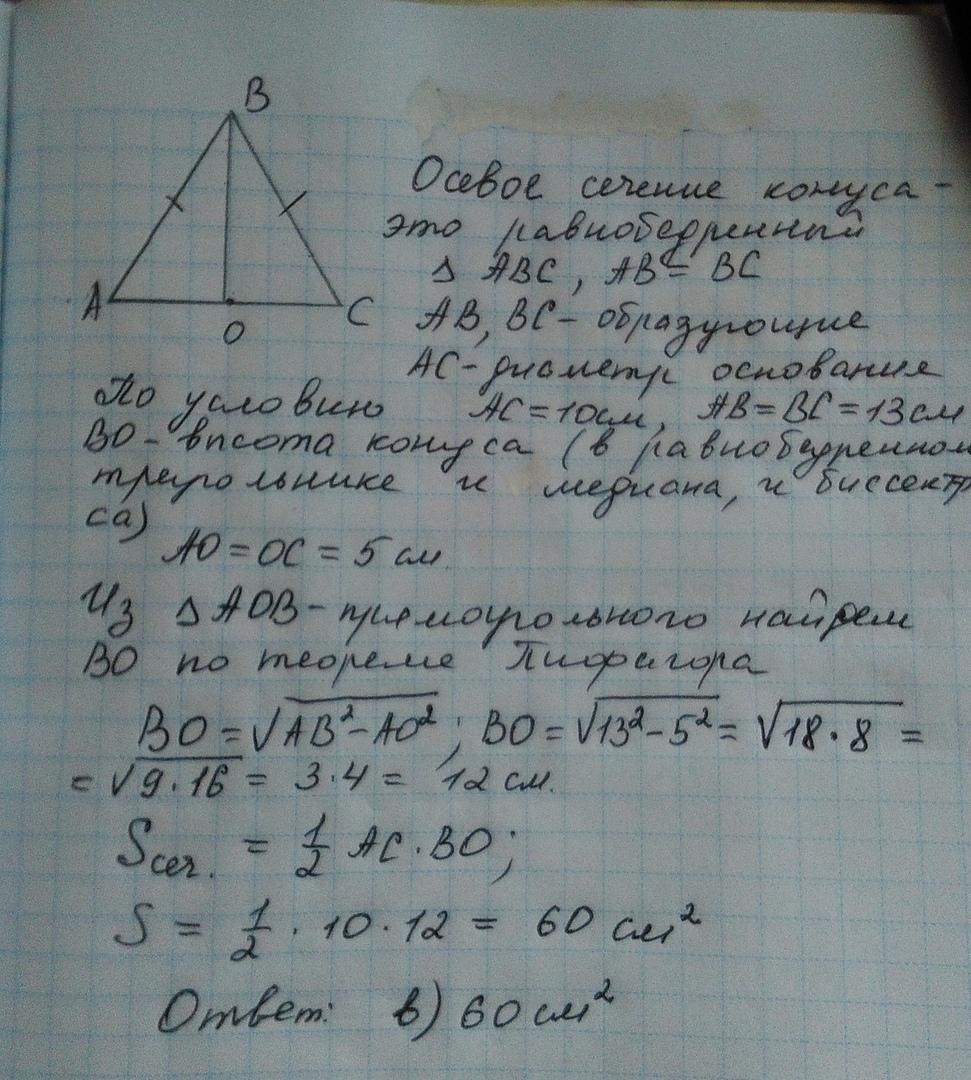 B
A
O
C
Осевое сечение конуса -
это равнобедренный
Δ ABC, AB = BC
AB, BC - образующие
AC - диаметр основания
По условию AC = 10 см, AB = BC = 13 см
BO - высота конуса (в равнобедренном
треугольнике и медиана, и биссектр
са)
AO = OC = 5 см.
Из Δ AOB - прямоугольного найдем
BO по теореме Пифагора
BO = √AB² - AO² ; BO = √13² - 5² = √18 · 8 =
= √9 · 16 = 3 · 4 = 12 см.
Sсеч. = 1/2 AC · BO;
S = 1/2 · 10 · 12 = 60 см²
Ответ: в) 60 см²